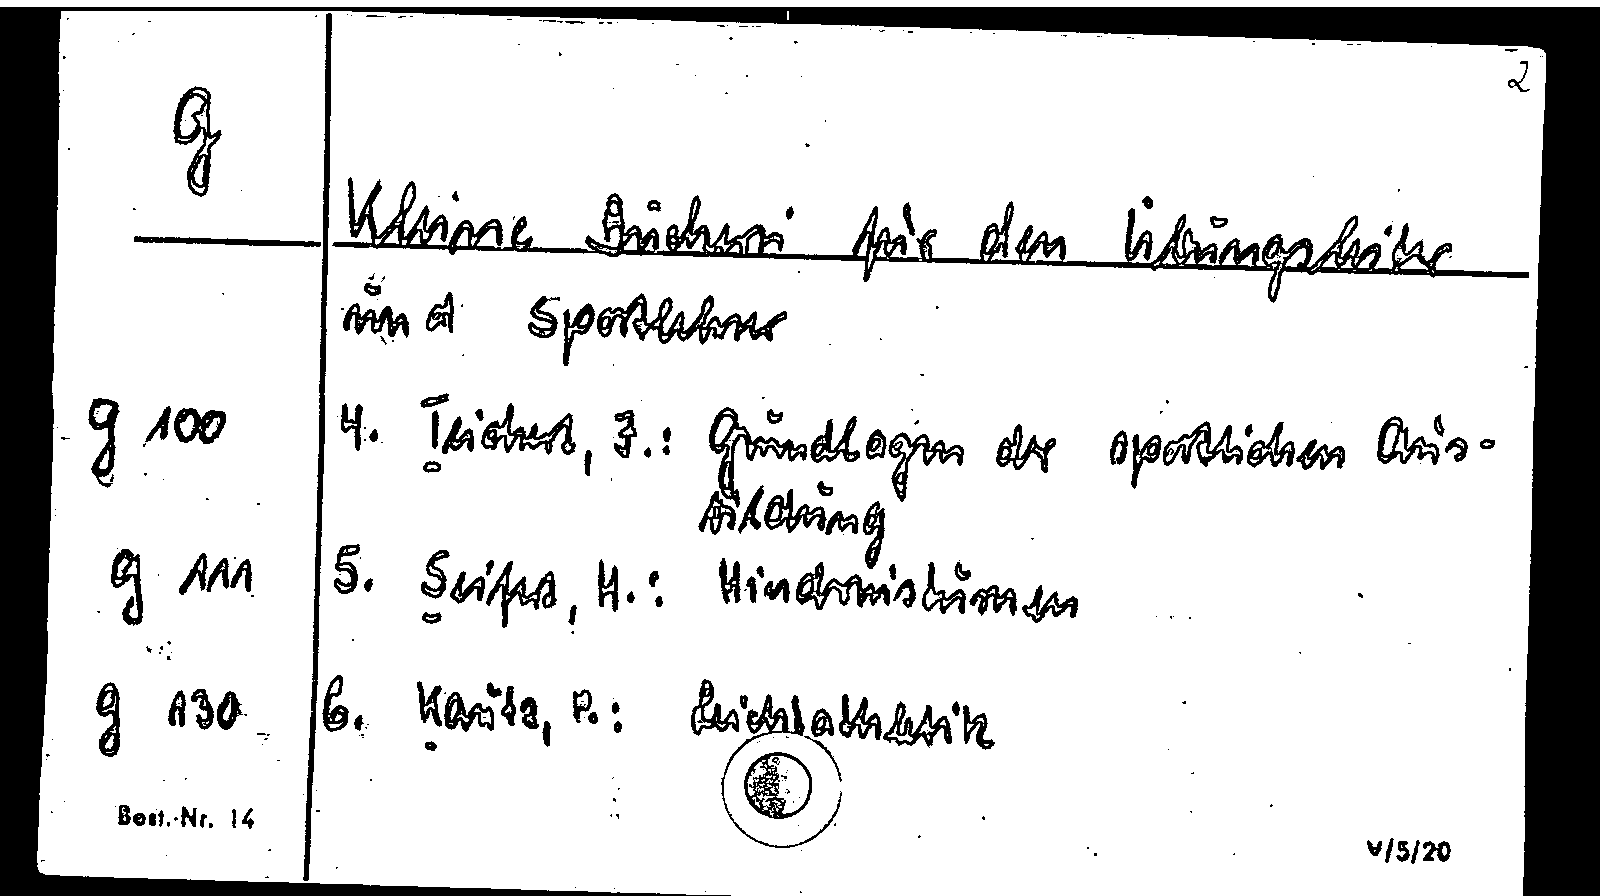 2
g
Kleine Bücherei für den Übungsleiter
und Sportlehrer
g 100 4. Teichert, F.: Grundlagen der sportlichen Aus-
bildung
g 111 5. Seifert, H.: Hindernisturnen
g 130 6. Kautz, P.: Leichtathletik
Best.-Nr. 14
V/5/20